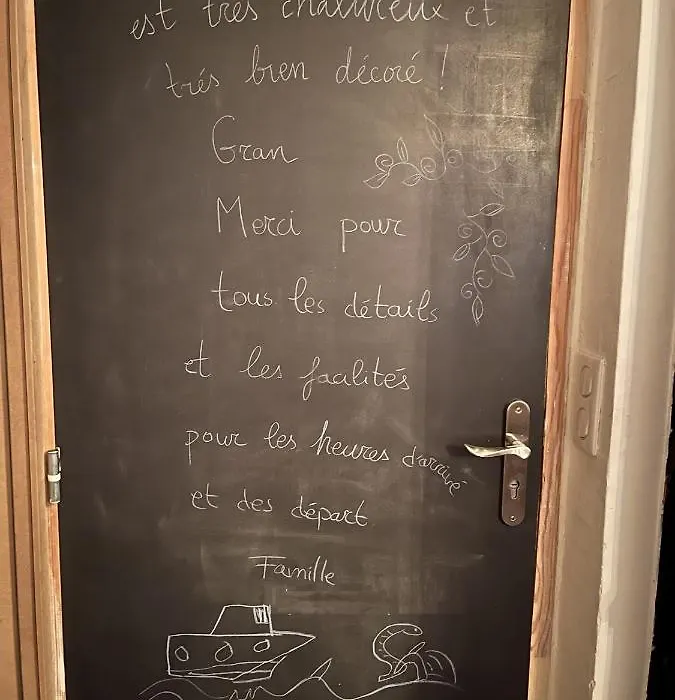 est très chaleureux et
trés bien décoré !
Gran
Merci pour
tous les détails
et les facilités
pour les heures d'arrivé
et des départ
Famille